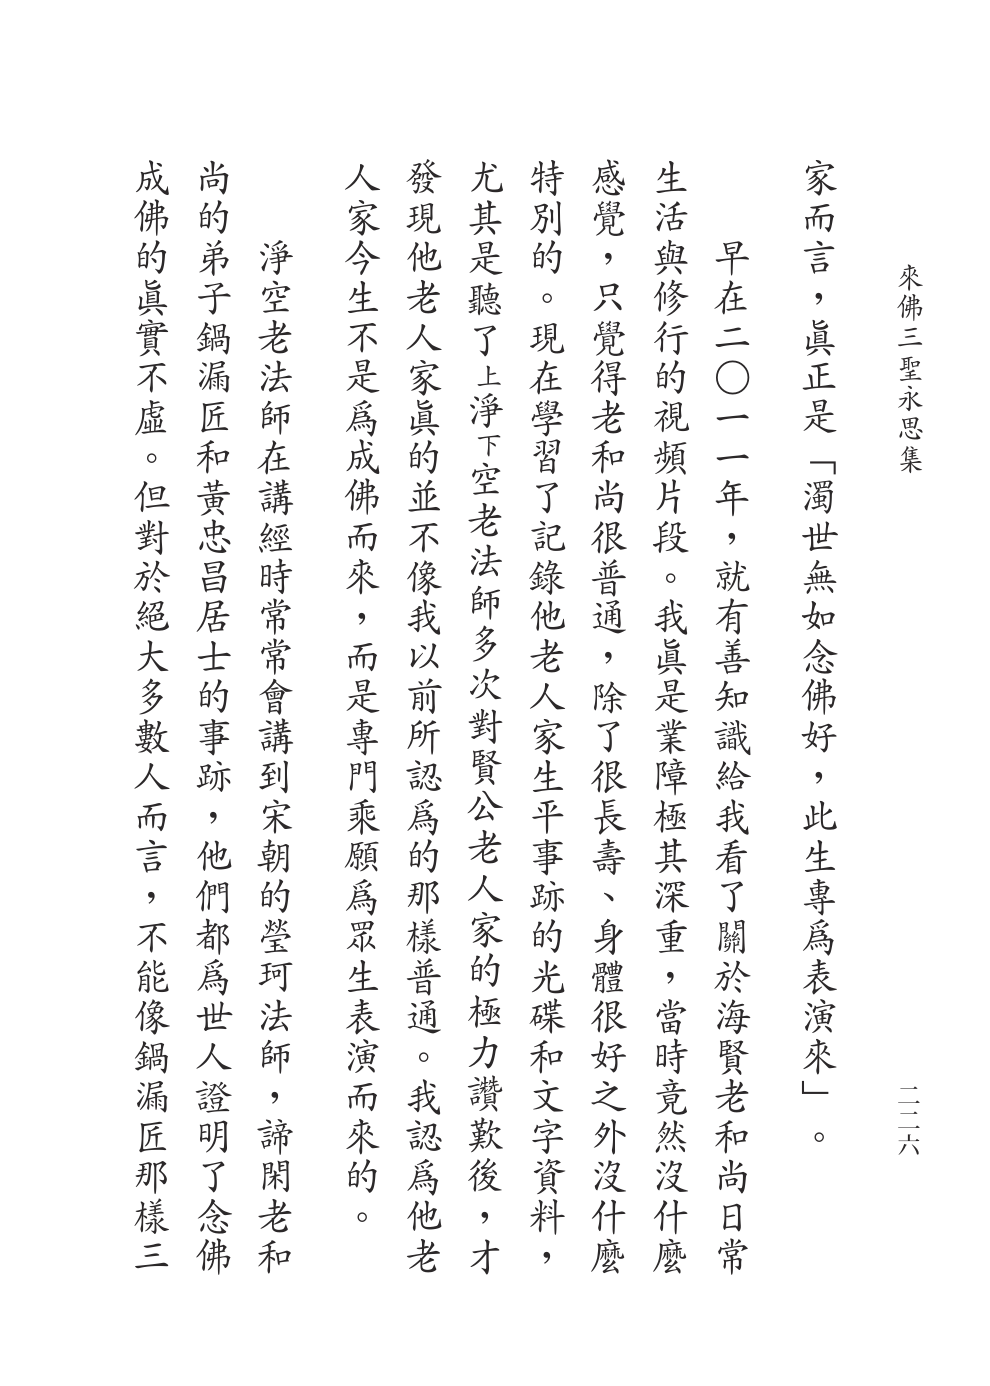 來佛三聖永思集
二二六
家而言，眞正是「濁世無如念佛好，此生專爲表演來」。
早在二〇一一年，就有善知識給我看了關於海賢老和尚日常
生活與修行的視頻片段。我眞是業障極其深重，當時竟然沒什麼
感覺，只覺得老和尚很普通，除了很長壽、身體很好之外沒什麼
特別的。現在學習了記錄他老人家生平事跡的光碟和文字資料，
尤其是聽了上淨下空老法師多次對賢公老人家的極力讚歎後，才
發現他老人家眞的並不像我以前所認爲的那樣普通。我認爲他老
人家今生不是爲成佛而來，而是專門乘願爲眾生表演而來的。
淨空老法師在講經時常常會講到宋朝的瑩珂法師，諦閑老和
尚的弟子鍋漏匠和黃忠昌居士的事跡，他們都爲世人證明了念佛
成佛的眞實不虛。但對於絕大多數人而言，不能像鍋漏匠那樣三